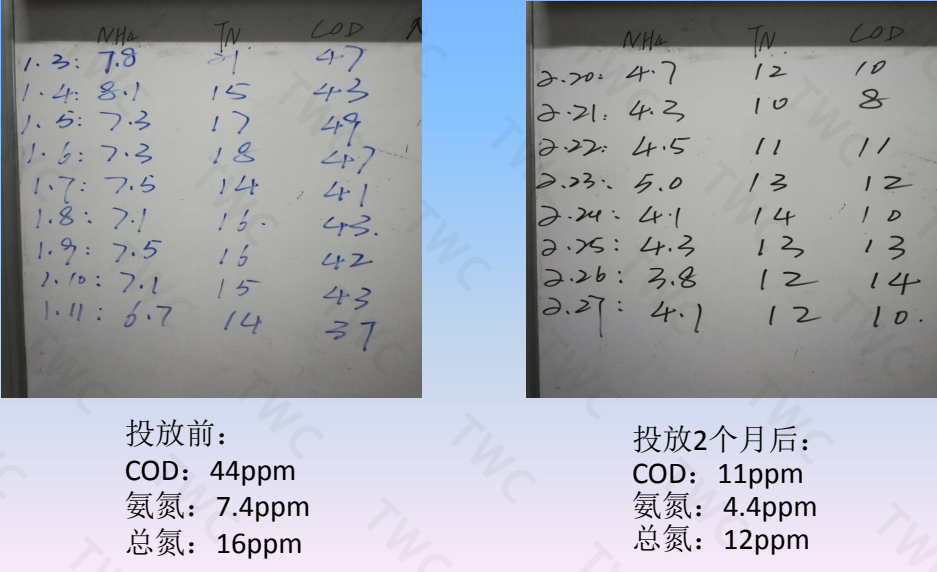 NH4 TN COD
1.3: 7.8 21 47
1.4: 8.1 15 43
1.5: 7.3 17 49
1.6: 7.3 18 47
1.7: 7.5 14 41
1.8: 7.1 16. 43.
1.9: 7.5 16 42
1.10: 7.1 15 43
1.11: 6.7 14 37
NH4 TN COD
2.20: 4.7 12 10
2.21: 4.3 10 8
2.22: 4.5 11 11
2.23: 5.0 13 12
2.24: 4.1 14 10
2.25: 4.3 13 13
2.26: 3.8 12 14
2.27: 4.1 12 10.
投放前：
COD：44ppm
氨氮：7.4ppm
总氮：16ppm
投放2个月后：
COD：11ppm
氨氮：4.4ppm
总氮：12ppm
TWC